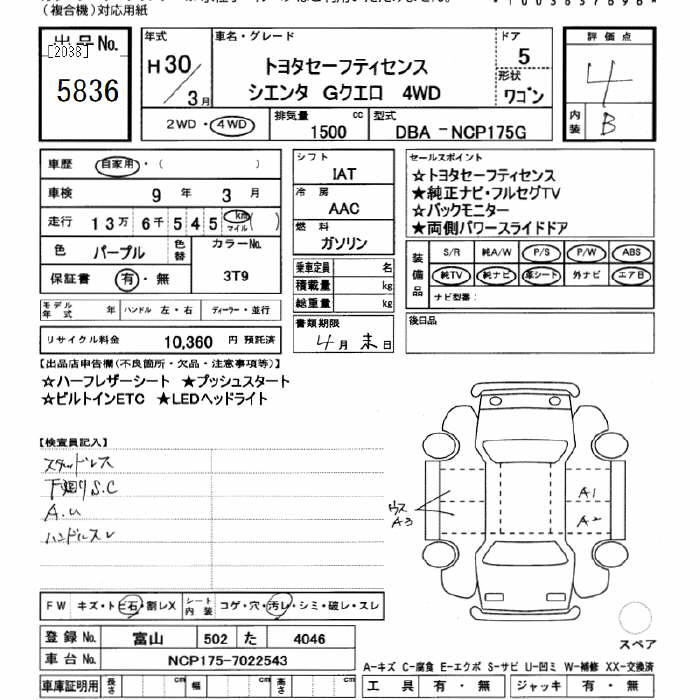 (複合機)対応用紙
出品No.
[2038]
5836
年式
H30/3月
車名・グレード
トヨタセーフティセンス
シエンタ Gクエロ 4WD
ドア
5
形状
ワゴン
評価点
4
内装
B
2WD・4WD
排気量
1500 cc
型式
DBA-NCP175G
車歴 自家用・( )
車検 9年 3月
走行 13万 6千 5 4 5 km マイル ( )
色 パープル 色替
カラーNo.
3T9
保証書 有・無
モデル年式 年 ハンドル 左・右 ディーラー・並行
リサイクル料金 10,360 円 預託済
シフト
IAT
冷房
AAC
燃料
ガソリン
乗車定員 名
積載量 kg
総重量 kg
書類期限
4月末日
セールスポイント
☆トヨタセーフティセンス
★純正ナビ・フルセグTV
☆バックモニター
★両側パワースライドドア
装備品
S/R 純A/W P/S P/W ABS
純TV 純ナビ 革シート 外ナビ エアB
ナビ型番:
後日品
【出品店申告欄(不良箇所・欠品・注意事項等)】
☆ハーフレザーシート ★プッシュスタート
☆ビルトインETC ★LEDヘッドライト
【検査員記入】
スタッドレス
下廻りS.C
A.u
ハンドルスレ
ウス
A3
A1
A2
FW キズ・トビ石・割レX シート内装 コゲ・穴・汚レ・シミ・破レ・スレ
登録No. 富山 502 た 4046
車台No. NCP175-7022543
車庫証明用 長さ cm 幅 cm 高さ cm
スペア
A-キズ C-腐食 E-エクボ S-サビ U-凹ミ W-補修 XX-交換済
工具 有・無 ジャッキ 有・無